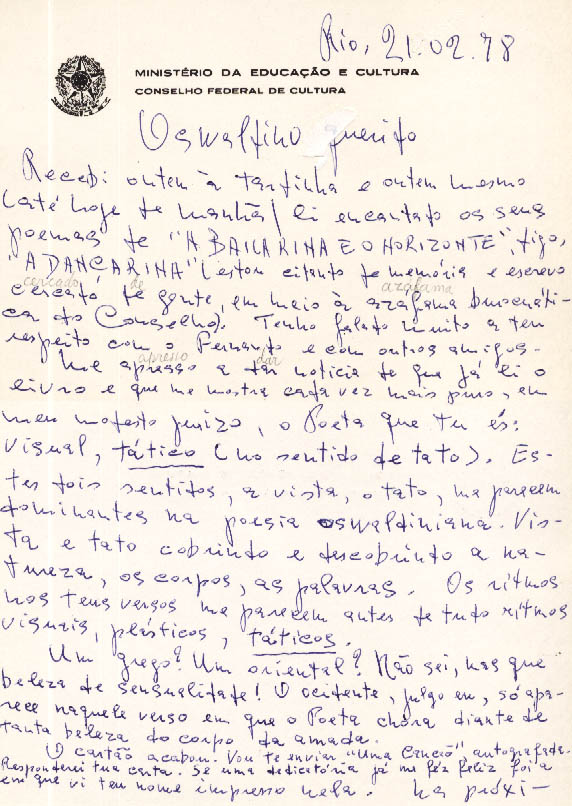 Rio, 21.02.78
MINISTÉRIO DA EDUCAÇÃO E CULTURA
CONSELHO FEDERAL DE CULTURA
Oswaldino querido
Recebi ontem à tardinha e ontem mesmo
(até hoje de manhã) li encantado os seus
poemas de "A BAILARINA E O HORIZONTE", digo,
"A DANÇARINA" (estou citando de memória e escrevo
cercado de azafama
cercado de gente, em meio à azafama burocráti-
ca do Conselho). Tenho falado muito a teu
respeito com o Fernando e com outros amigos.
apresso dar
Me apresso a dar notícia de que já li o
livro e que me mostra cada vez mais puro, em
meu modesto juizo, o Poeta que tu és:
visual, tático (no sentido de tato). Es-
tes dois sentidos, a vista, o tato, me parecem
dominantes na poesia oswaldiniana. Vis-
ta e tato cobrindo e descobrindo a na-
tureza, os corpos, as palavras. Os ritmos
nos teus versos me parecem antes de tudo ritmos
visuais, plásticos, táticos.
Um grego? Um oriental? Não sei, mas que
beleza de sensualidade! O ocidente, julgo eu, só apa-
rece naquele verso em que o Poeta chora diante de
tanta beleza do corpo da amada.
O cartão acabou. Vou te enviar "Uma Canção" autografada.
Responderei tua carta. Se uma dedicatória já me fez feliz foi a
em que vi teu nome impresso nela. Na próxi-